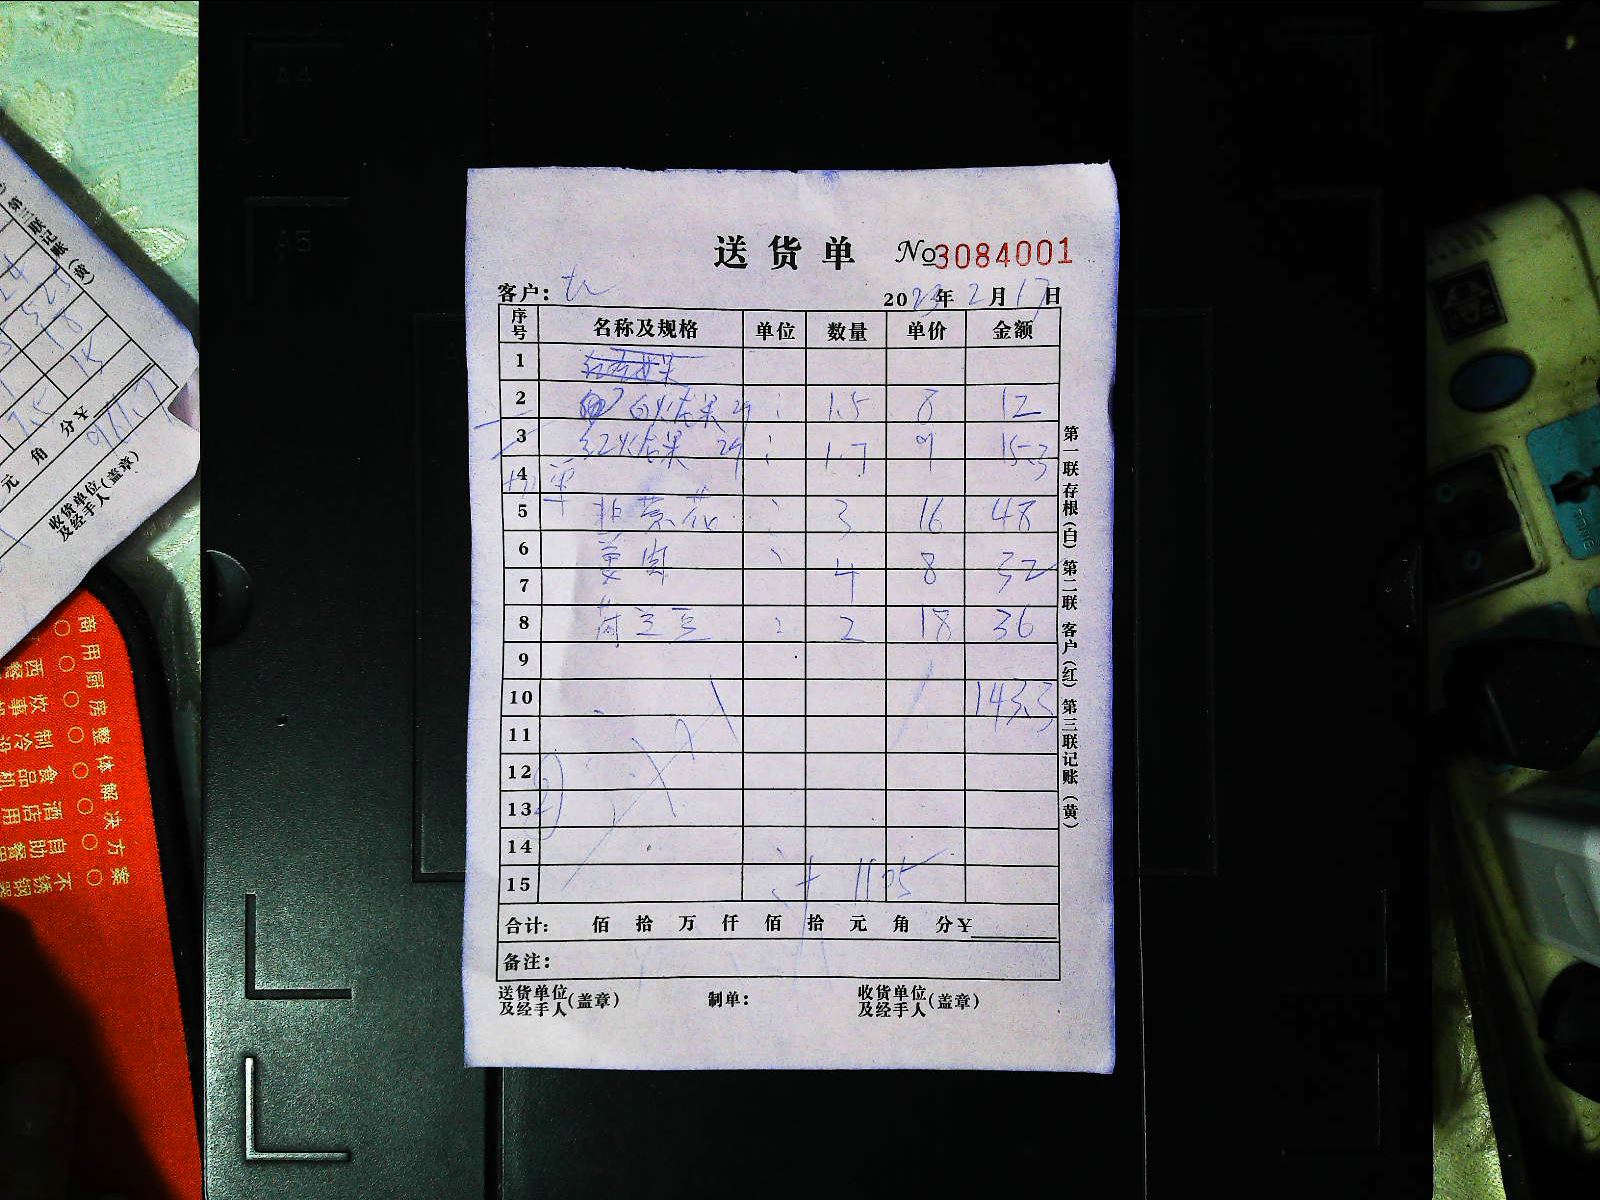 送货单 №3084001
客户：
2023年2月17日
序号 名称及规格 单位 数量 单价 金额
1
2 白火龙果 2个 1.5 8 12
3 红火龙果 2个 1.7 9 15.3
4 加单
5 韭黄花 3 16 48
6
7 4 8 32
8 荷兰豆 2 18 36
9
10 143.3
11
12
13
14
15 计 1105
合计： 佰 拾 万 仟 佰 拾 元 角 分¥
备注：
送货单位及经手人(盖章) 制单： 收货单位及经手人(盖章)
第一联 存根(白) 第二联 客户(红) 第三联 记账(黄)
第三联 记账(黄)
525
18
15
7.5
元 角 分¥
收货单位及经手人(盖章)
商用厨房整体解决方案
A4
A5